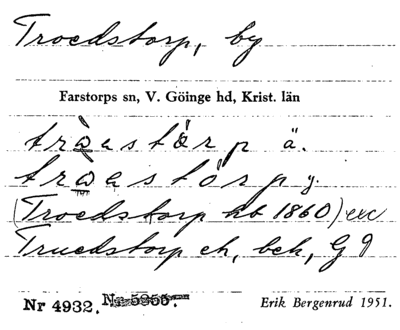 Troedstorp, by
Farstorps sn, V. Göinge hd, Krist. län
tràestòrp ä.
tràestòrp y.
(Troedstorp hb 1860) exc
Truedstorp ek, bek, G 9
Nr 4932. No 5255.
Erik Bergenrud 1951.